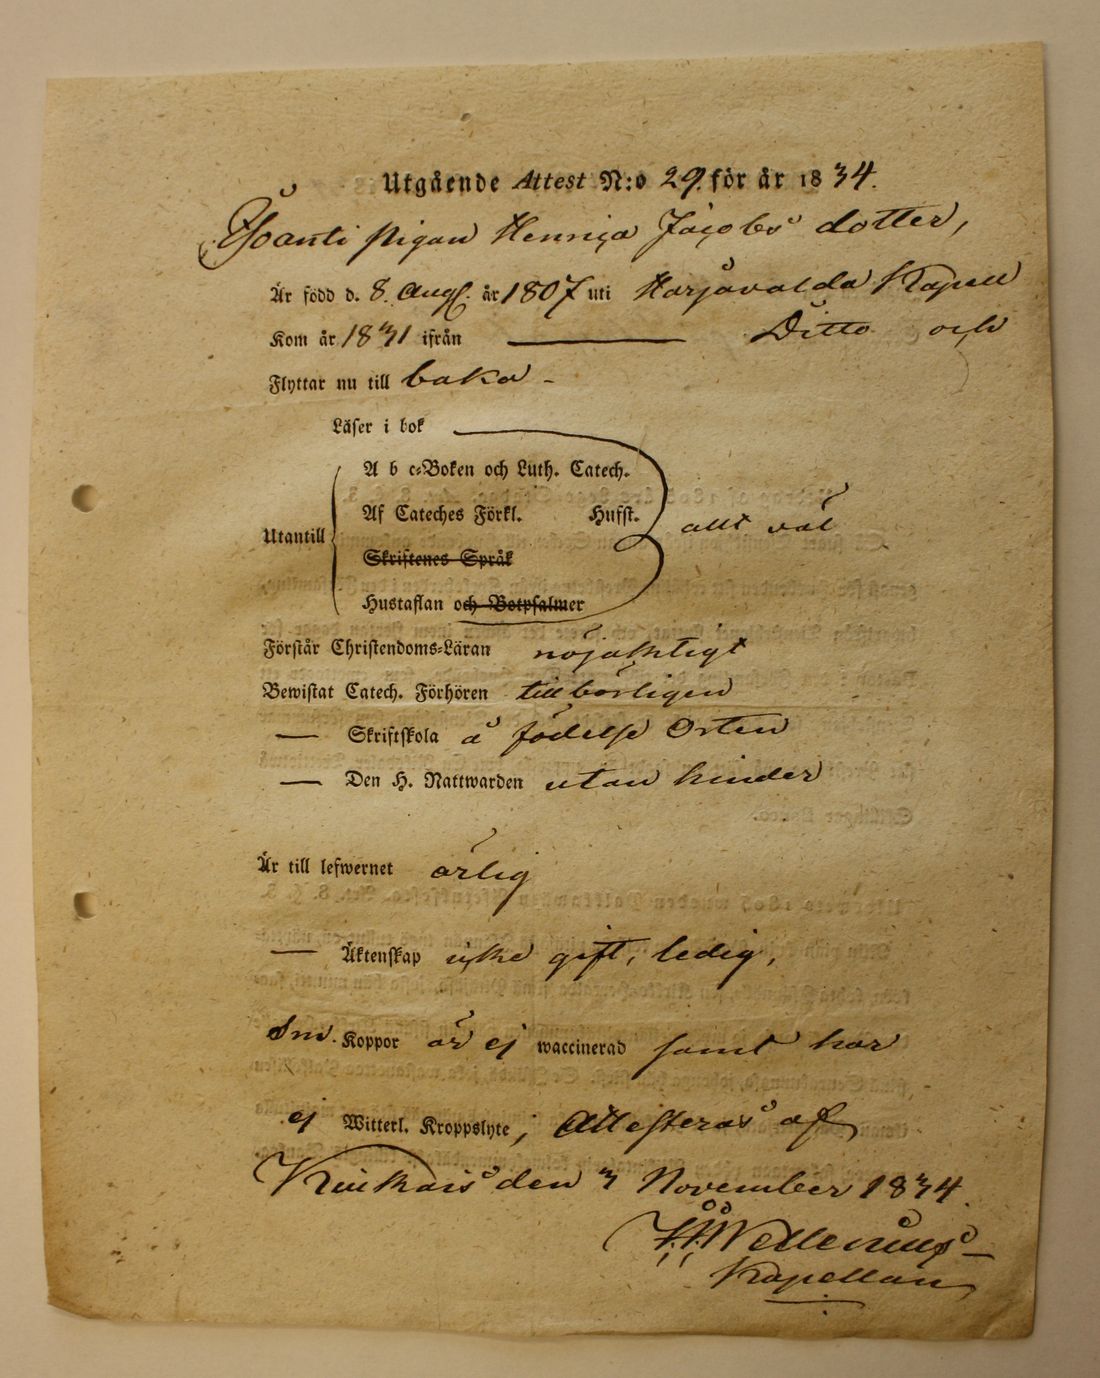 Utgående Attest N:o 29. för år 1834.
pigan Henrica Jacobs dotter,
Är född d. 8. Aug. år 1807 uti Harjavalda Kapell
Kom år 1831 ifrån — Ditto och
Flyttar nu till baka -
Läser i bok
A b c-Boken och Luth. Catech.
Af Cateches Förkl. Husst. allt väl
Utantill
Skriftenes Språk
Hustaflan och Botpsalmer
Förstår Christendoms-Läran nöjaktigt
Bewistat Catech. Förhören tillbörligen
— Skriftskola å födelse Orten
— Den H. Nattwarden utan hinder
Är till lefwernet ärlig
— Äktenskap icke gift, ledig,
Sm. Koppor är ej waccinerad samt har
ej Witterl. Kroppslyte, Attesteras af
Kiukais den 3 November 1834.
Kapellan